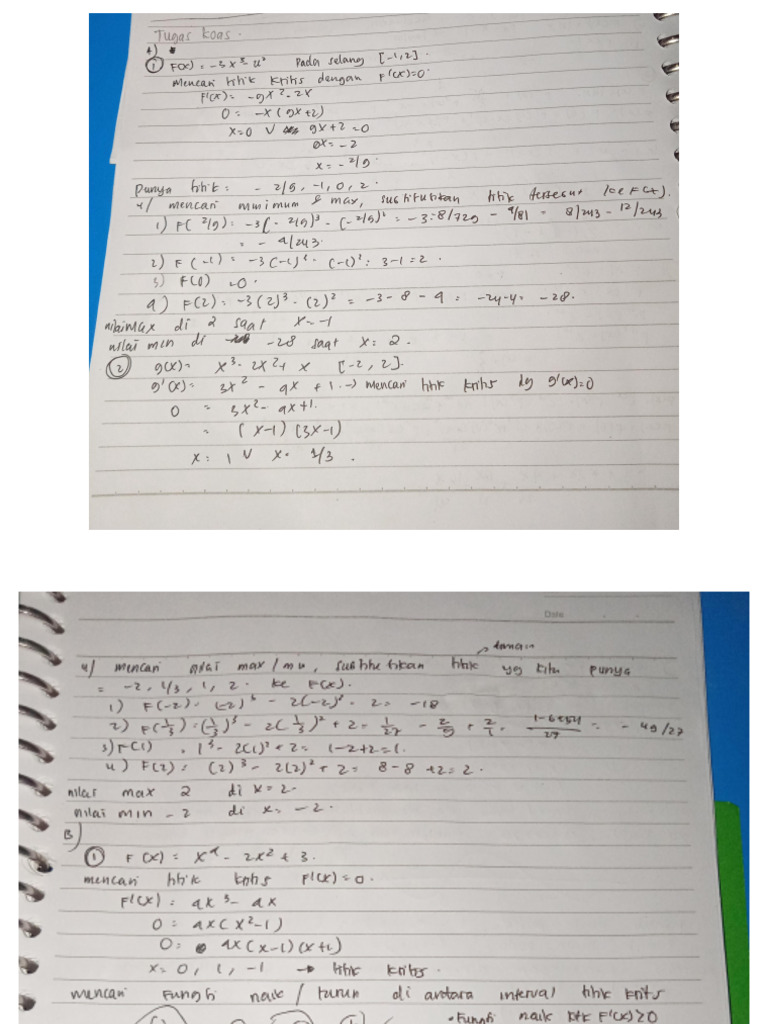 Tugas Koas.
A)
① F(x) = -3x³ - x² pada selang [-1,2].
mencari titik kritis dengan F'(x)=0.
F'(x) = -9x² - 2x
0 = -x(9x+2)
x=0 V 9x+2=0
9x = -2
x = -2/9.
Punya titik : - 2/9, -1, 0, 2.
u/ mencari minimum & max, substitutikan titik tersebut ke F(x).
1) F(2/9) = -3(-2/9)³ - (-2/9)² = -3·-8/729 - 4/81 = 8/243 - 12/243
= - 4/243.
2) F(-1) = -3(-1)³ - (-1)² = 3-1 = 2.
3) F(0) = 0.
4) F(2) = -3(2)³ - (2)² = -3 - 8 - 4 = -24-4 = -28.
nilai max di 2 saat x=-1
nilai min di -28 saat x = 2.
② g(x) = x³ - 2x² + x [-2, 2].
g'(x) = 3x² - 4x + 1 → mencari titik kritis dg g'(x)=0
0 = 3x² - 4x+1.
= (x-1) (3x-1)
x = 1 V x = 1/3.
Date
u/ mencari nilai max/min, substitutikan titik yg kita punya
= -2, 1/3, 1, 2. ke F(x).
1) F(-2) = (-2)³ - 2(-2)² + 2 = -18
2) F(1/3) = (1/3)³ - 2(1/3)² + 2 = 1/27 - 2/9 + 2/1 = 1-6+54/27 = - 49/27
3) F(1) = 1³ - 2(1)² + 2 = 1-2+2 = 1.
4) F(2) = (2)³ - 2(2)² + 2 = 8 - 8 +2 = 2.
nilai max 2 di x = 2.
nilai min -2 di x = -2.
B)
① F(x) = x⁴ - 2x² + 3.
mencari titik kritis F'(x) = 0.
F'(x) = 4x³ - 4x
0 = 4x(x²-1)
0 = 4x(x-1)(x+1)
x = 0, 1, -1 → titik kritis.
mencari fungsi naik / turun di antara interval titik krits
• Fungsi naik jtk F'(x)≥0